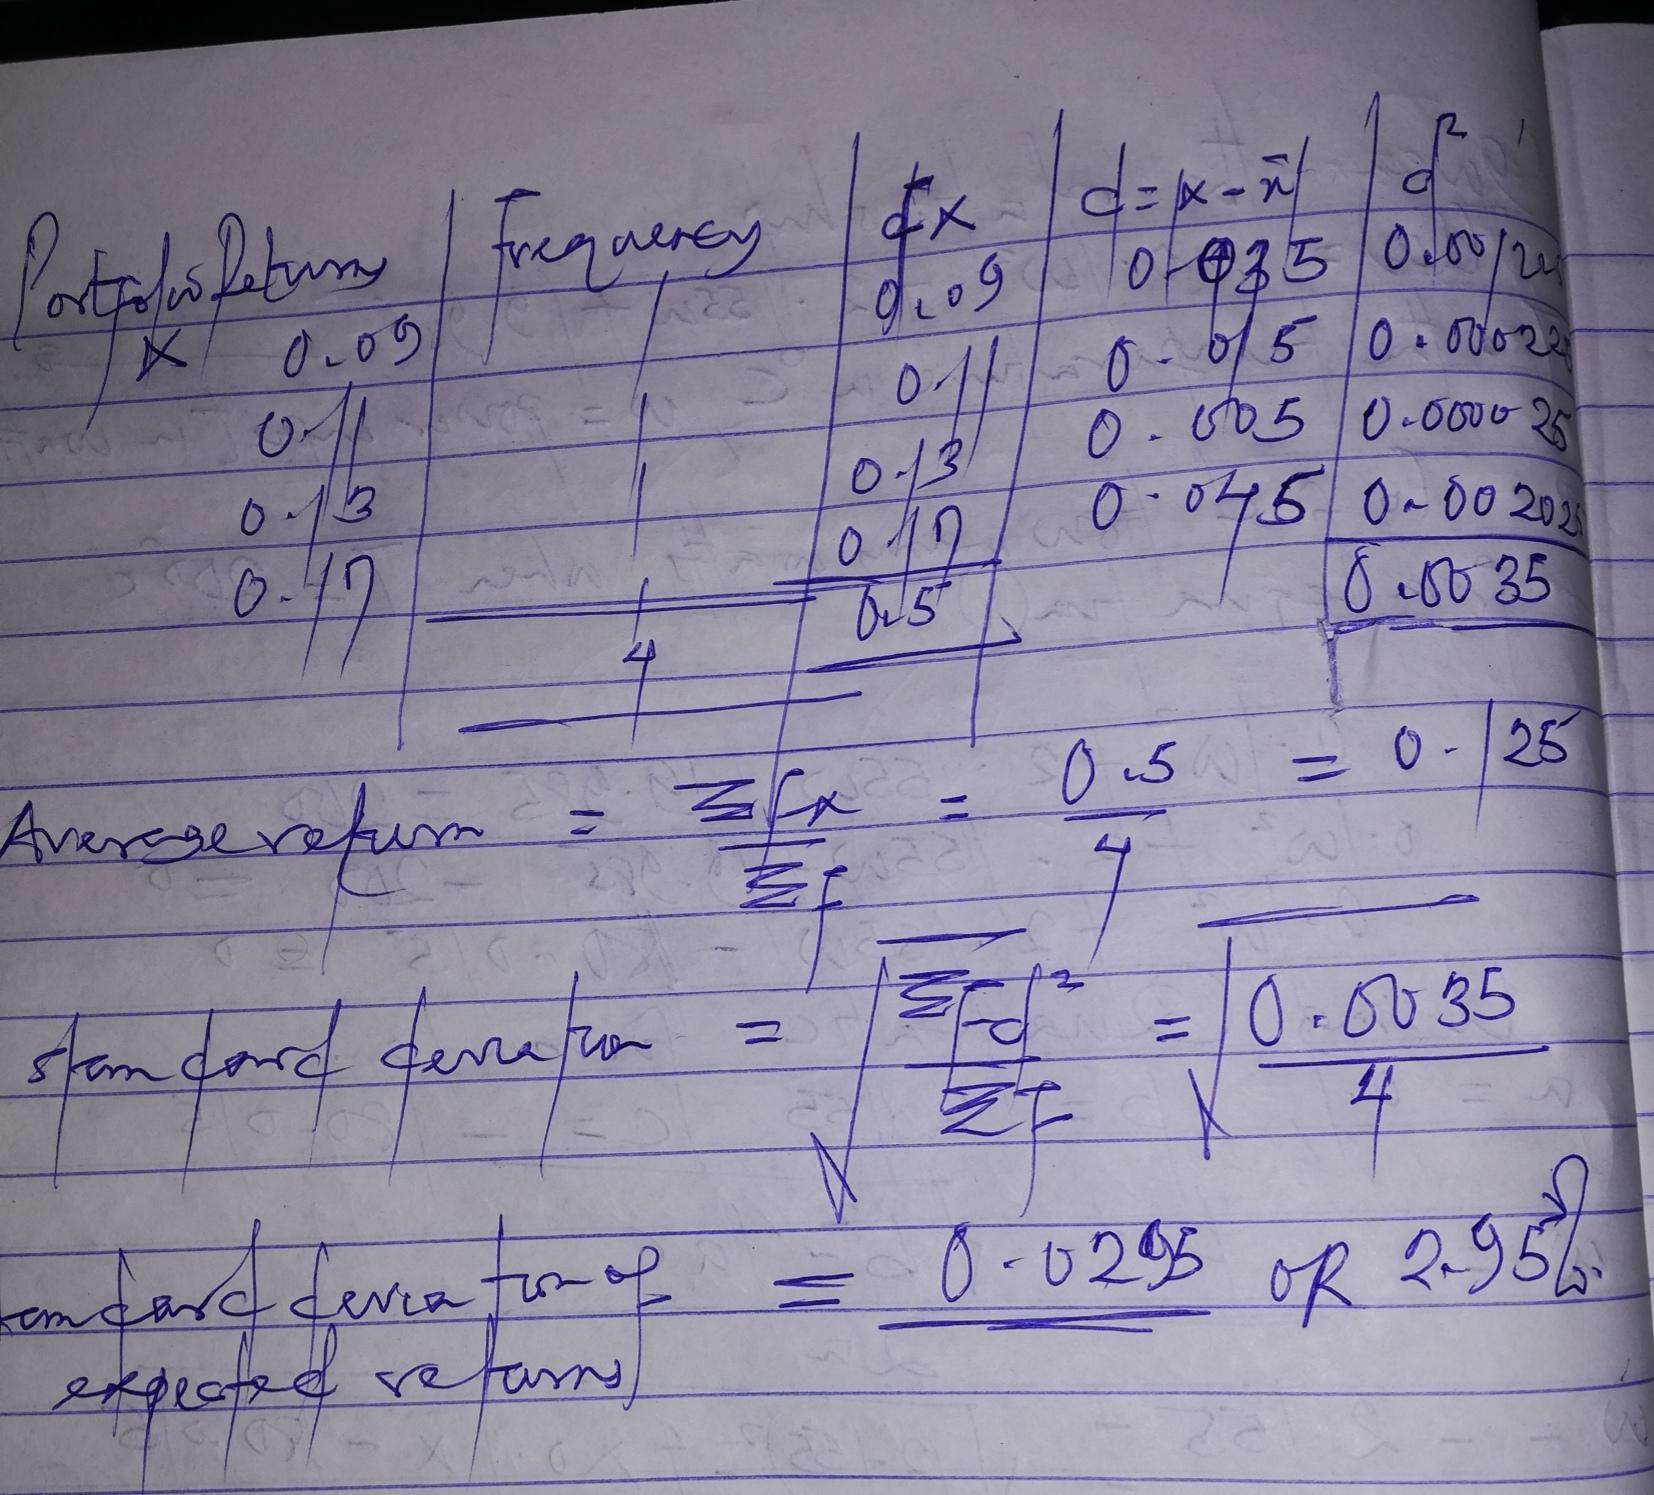 Portfolio Returns | Frequency | fx | d=|x-x̄| | d²
X 0.09 | 1 | 0.09 | 0.035 | 0.001225
0.11 | 1 | 0.11 | 0.015 | 0.000225
0.13 | 1 | 0.13 | 0.005 | 0.000025
0.17 | 1 | 0.17 | 0.045 | 0.002025
4 | 0.5 | 0.0035
Average return = Σfx / Σf = 0.5 / 4 = 0.125
standard deviation = √(Σfd² / Σf) = √(0.0035 / 4)
standard deviation of = 0.0295 OR 2.95%
expected returns